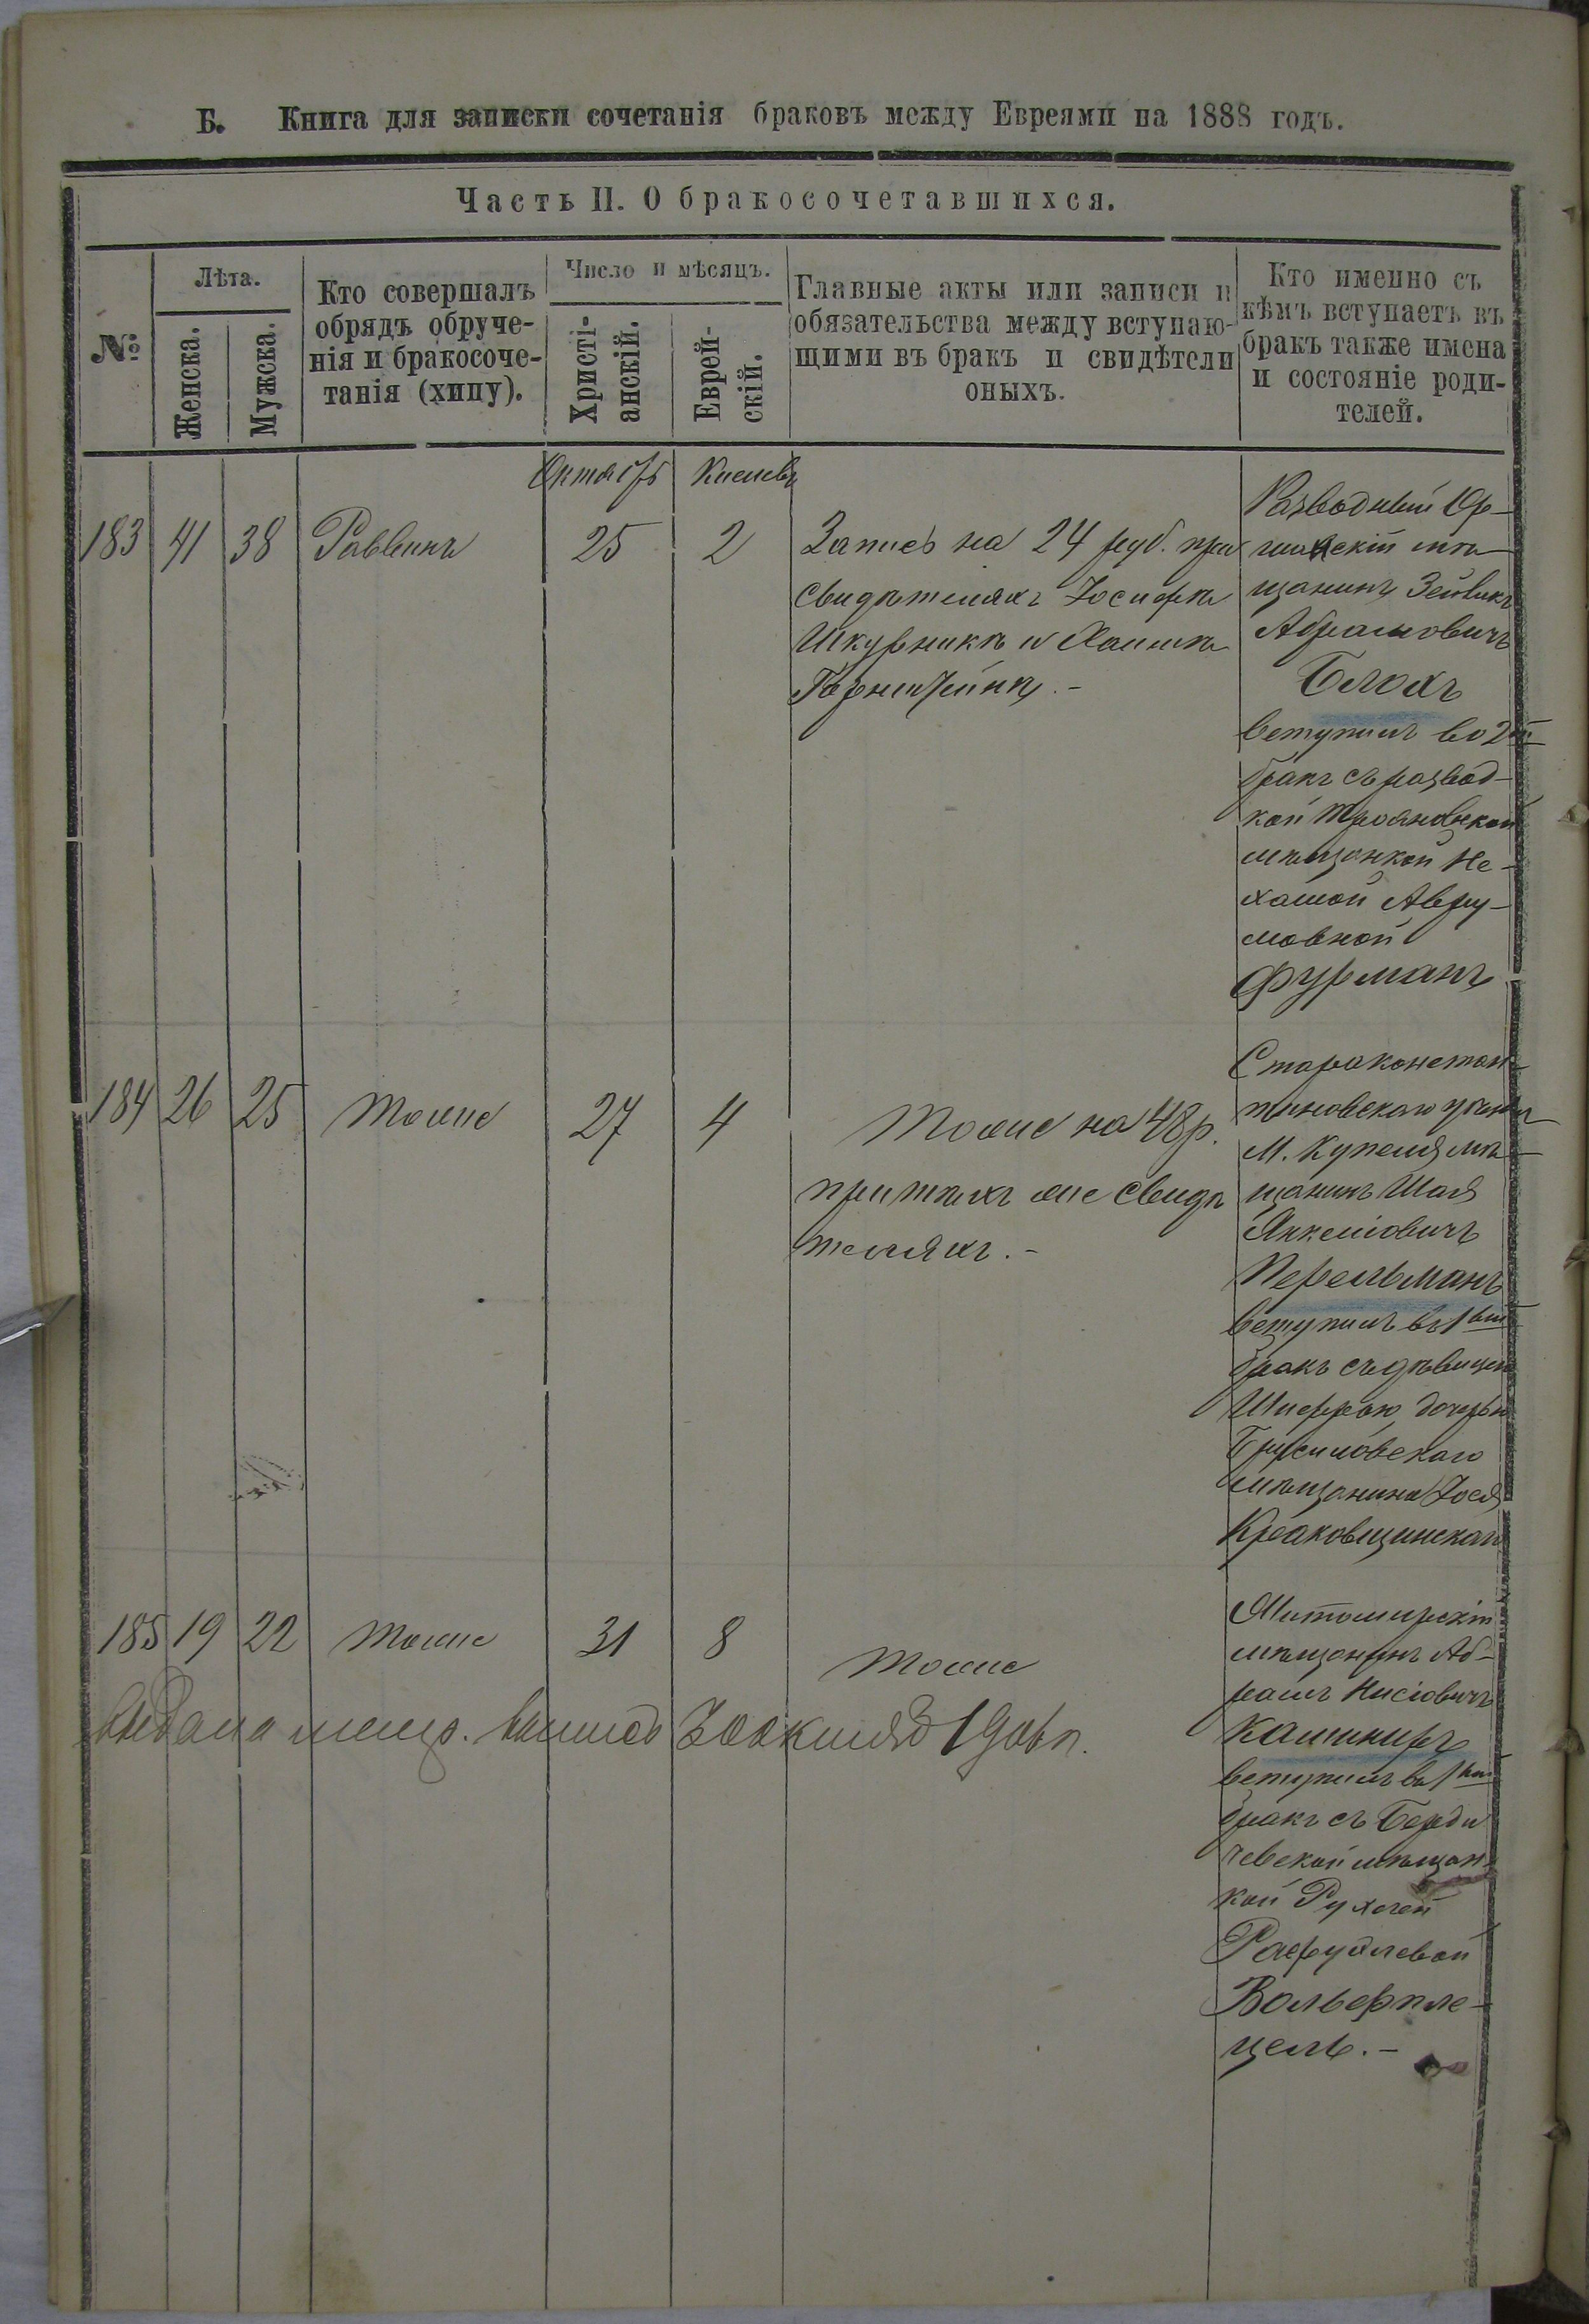 Б. Книга для записки сочетанія браковъ между Евреями на 1888 годъ.
Часть II. О бракосочетавшихся.
№
Лѣта.
Женска.
Мужска.
Кто совершалъ
обрядъ обруче-
нія и бракосоче-
танія (хипу).
Число и мѣсяцъ.
Христі-
анскій.
Еврей-
скій.
Главные акты или записи и
обязательства между вступаю-
щими въ бракъ и свидѣтели
оныхъ.
Кто именно съ
кѣмъ вступаетъ въ
бракъ также имена
и состояніе роди-
телей.
Октября
Кислевъ
183 41 38 Раввинъ 25 2
Запись на 24 руб. при
свидѣтеляхъ Іосифѣ
Шкурникѣ и Хаимѣ
Разводный
мѣ-
щанинъ Зейликъ
Абрамовичъ
Блохъ
вступилъ во 2й
бракъ съ развод-
кой Трояновской
мѣщанкой Не-
хамой Авру-
мовной
Фурманъ
184 26 25 Тоже 27 4
Тоже на 48 р.
при тѣхъ же свидѣ
теляхъ.-
Староконстан-
тиновскаго уѣзда
М. Купеля мѣ-
щанинъ Шая
Янкелiовичъ
Перельманъ
вступилъ въ 1вый
бракъ съ дѣвицею
Шифрою дочерью
Брусиловскаго
мѣщанина Іося
185 19 22 Тоже 31 8
Тоже
Житомирскій
мѣщанинъ Аб-
рамъ Нисiовичъ
Кашниръ
вступилъ въ 1вый
бракъ съ Берди
чевской мѣщан-
кой Рухлей
Рафуйлевой
Вольфпле-
цель.-
Выдана метр. выпись 1906 г.